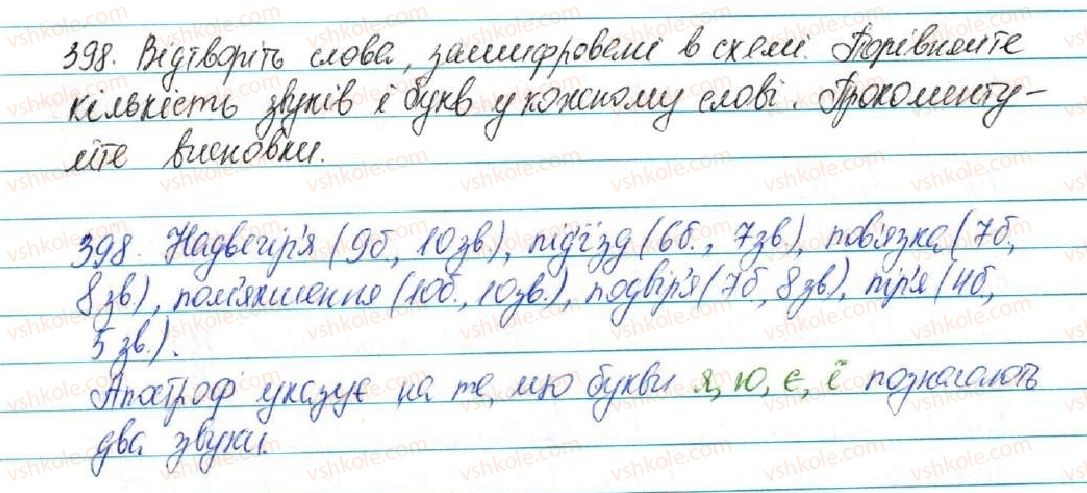 398. Відтворіть слова, зашифровані в схемі. Порівняйте
кількість звуків і букв у кожному слові. Прокоменту-
йте висновки.
398. Надвечір'я (9б, 10зв.), під'їзд (6б., 7зв.), пов'язка (7б,
8зв.), пом'якшення (10б., 10зв.), подвір'я (7б, 8зв), пір'я (4б,
5 зв.).
Апостроф указує на те, що букви я, ю, є, ї позначають
два звуки.